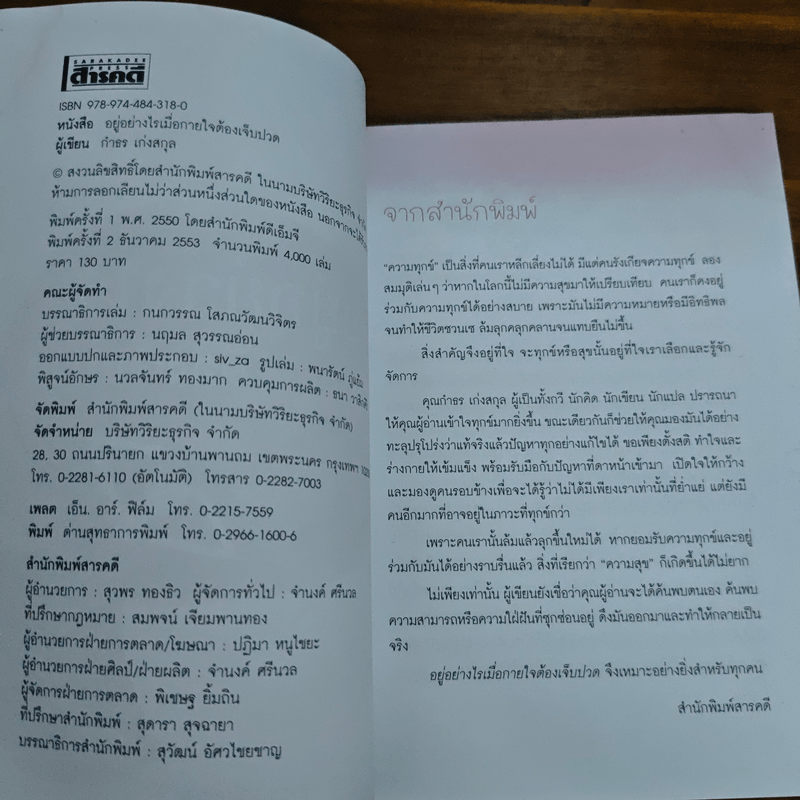 SARAKADEE
PRESS
สารคดี
ISBN 978-974-484-318-0
หนังสือ อยู่อย่างไรเมื่อกายใจต้องเจ็บปวด
ผู้เขียน กำธร เก่งสกุล
© สงวนลิขสิทธิ์โดยสำนักพิมพ์สารคดี ในนามบริษัทวิริยะธุรกิจ จำกัด
ห้ามการลอกเลียนไม่ว่าส่วนหนึ่งส่วนใดของหนังสือ นอกจากจะได้รับ
พิมพ์ครั้งที่ 1 พ.ศ. 2550 โดยสำนักพิมพ์ดีเอ็มจี
พิมพ์ครั้งที่ 2 ธันวาคม 2553 จำนวนพิมพ์ 4,000 เล่ม
ราคา 130 บาท
คณะผู้จัดทำ
บรรณาธิการเล่ม : กนกวรรณ โสภณวัฒนวิจิตร
ผู้ช่วยบรรณาธิการ : นฤมล สุวรรณอ่อน
ออกแบบปกและภาพประกอบ : siv_za รูปเล่ม : พนารัตน์
พิสูจน์อักษร : นวลจันทร์ ทองมาก ควบคุมการผลิต : ธนา
จัดพิมพ์ สำนักพิมพ์สารคดี (ในนามบริษัทวิริยะธุรกิจ จำกัด)
จัดจำหน่าย บริษัทวิริยะธุรกิจ จำกัด
28, 30 ถนนปรินายก แขวงบ้านพานถม เขตพระนคร กรุงเทพฯ 10200
โทร. 0-2281-6110 (อัตโนมัติ) โทรสาร 0-2282-7003
เพลต เอ็น. อาร์. ฟิล์ม โทร. 0-2215-7559
พิมพ์ ด่านสุทธาการพิมพ์ โทร. 0-2966-1600-6
สำนักพิมพ์สารคดี
ผู้อำนวยการ : สุวพร ทองธิว ผู้จัดการทั่วไป : จำนงค์ ศรีนวล
ที่ปรึกษากฎหมาย : สมพจน์ เจียมพานทอง
ผู้อำนวยการฝ่ายการตลาด/โฆษณา : ปฏิมา หนูไชยะ
ผู้อำนวยการฝ่ายศิลป์/ฝ่ายผลิต : จำนงค์ ศรีนวล
ผู้จัดการฝ่ายการตลาด : พิเชษฐ ยิ้มถิน
ที่ปรึกษาสำนักพิมพ์ : สุดารา สุจฉายา
บรรณาธิการสำนักพิมพ์ : สุวัฒน์ อัศวไชยชาญ
จากสำนักพิมพ์
"ความทุกข์" เป็นสิ่งที่คนเราหลีกเลี่ยงไม่ได้ มีแต่คนรังเกียจความทุกข์ ลอง
สมมุติเล่นๆ ว่าหากในโลกนี้ไม่มีความสุขมาให้เปรียบเทียบ คนเราก็คงอยู่
ร่วมกับความทุกข์ได้อย่างสบาย เพราะมันไม่มีความหมายหรือมีอิทธิพล
จนทำให้ชีวิตซวนเซ ล้มลุกคลุกคลานจนแทบยืนไม่ขึ้น
สิ่งสำคัญจึงอยู่ที่ใจ จะทุกข์หรือสุขนั้นอยู่ที่ใจเราเลือกและรู้จัก
จัดการ
คุณกำธร เก่งสกุล ผู้เป็นทั้งกวี นักคิด นักเขียน นักแปล ปรารถนา
ให้คุณผู้อ่านเข้าใจทุกข์มากยิ่งขึ้น ขณะเดียวกันก็ช่วยให้คุณมองมันได้อย่าง
ทะลุปรุโปร่งว่าแท้จริงแล้วปัญหาทุกอย่างแก้ไขได้ ขอเพียงตั้งสติ ทำใจและ
ร่างกายให้เข้มแข็ง พร้อมรับมือกับปัญหาที่ดาหน้าเข้ามา เปิดใจให้กว้าง
และมองดูคนรอบข้างเพื่อจะได้รู้ว่าไม่ได้มีเพียงเราเท่านั้นที่ย่ำแย่ แต่ยังมี
คนอีกมากที่อาจอยู่ในภาวะที่ทุกข์กว่า
เพราะคนเรานั้นล้มแล้วลุกขึ้นใหม่ได้ หากยอมรับความทุกข์และอยู่
ร่วมกับมันได้อย่างราบรื่นแล้ว สิ่งที่เรียกว่า "ความสุข" ก็เกิดขึ้นได้ไม่ยาก
ไม่เพียงเท่านั้น ผู้เขียนยังเชื่อว่าคุณผู้อ่านจะได้ค้นพบตนเอง ค้นพบ
ความสามารถหรือความใฝ่ฝันที่ซุกซ่อนอยู่ ดึงมันออกมาและทำให้กลายเป็น
จริง
อยู่อย่างไรเมื่อกายใจต้องเจ็บปวด จึงเหมาะอย่างยิ่งสำหรับทุกคน
สำนักพิมพ์สารคดี